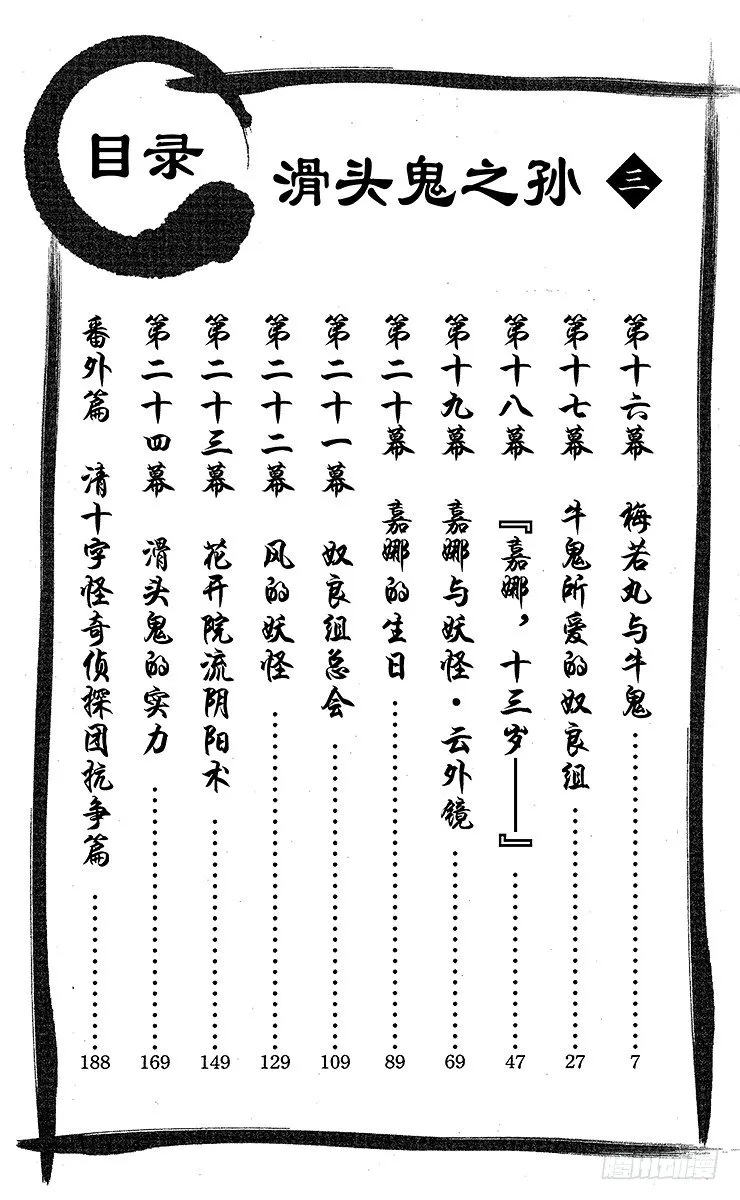 目录
滑头鬼之孙 三
第十六幕 梅若丸与牛鬼 7
第十七幕 牛鬼所爱的奴良组 27
第十八幕 『嘉娜，十三岁——』 47
第十九幕 嘉娜与妖怪·云外镜 69
第二十幕 嘉娜的生日 89
第二十一幕 奴良组总会 109
第二十二幕 风的妖怪 129
第二十三幕 花开院流阴阳术 149
第二十四幕 滑头鬼的实力 169
番外篇 清十字怪奇侦探团抗争篇 188
腾讯动漫